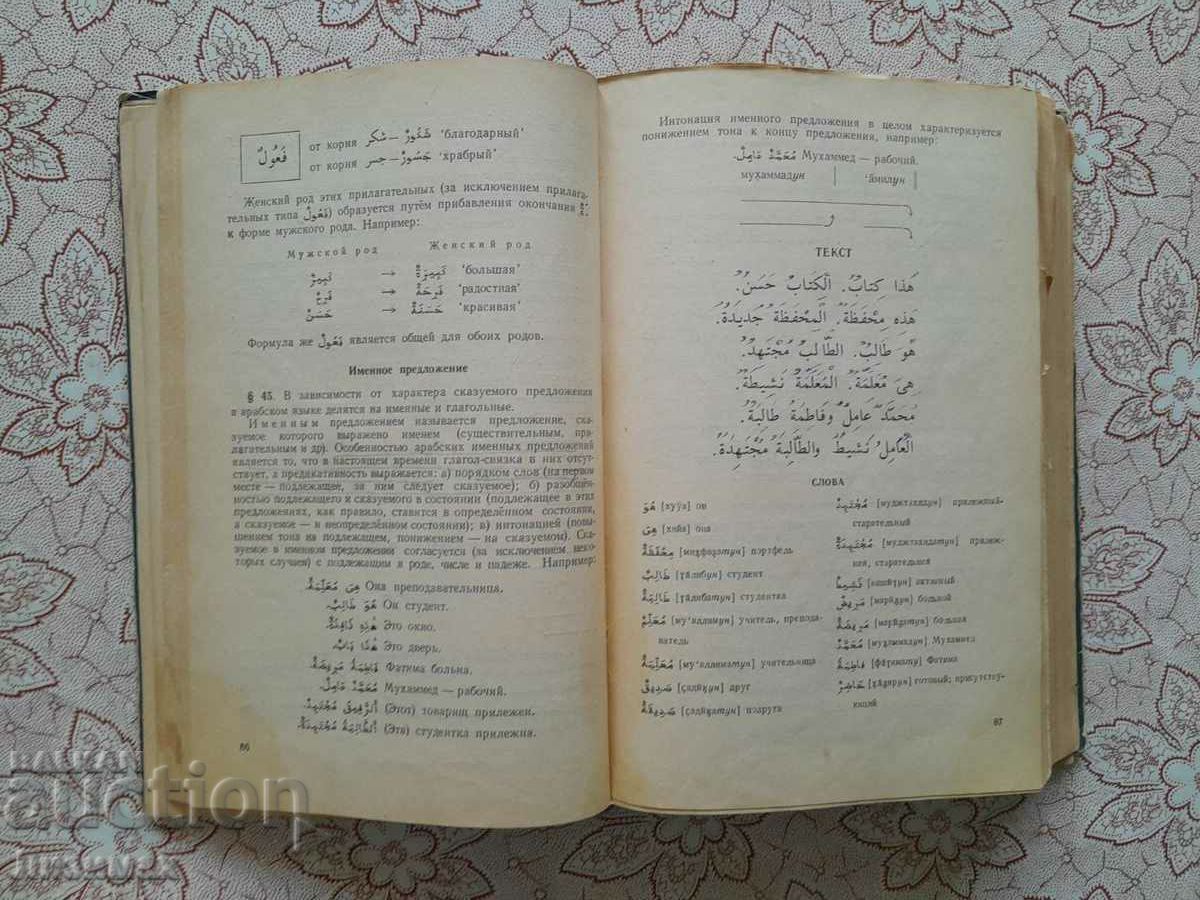 فَعُولٌ
от корня شكر — شَكُورٌ 'благодарный'
от корня جسر — جَسُورٌ 'храбрый'
Женский род этих прилагательных (за исключением прилага-
тельных типа فَعُولٌ) образуется путём прибавления окончания ـَةٌ
к форме мужского рода. Например:
Мужской род Женский род
كَبِيرٌ → كَبِيرَةٌ 'большая'
فَرِحٌ → فَرِحَةٌ 'радостная'
حَسَنٌ → حَسَنَةٌ 'красивая'
Формула же فَعُولٌ является общей для обоих родов.
Именное предложение
§ 45. В зависимости от характера сказуемого предложения
в арабском языке делятся на именные и глагольные.
Именным предложением называется предложение, ска-
зуемое которого выражено именем (существительным, при-
лагательным и др). Особенностью арабских именных предложений
является то, что в настоящем времени глагол-связка в них отсут-
ствует, а предикативность выражается: а) порядком слов (на первом
месте — подлежащее, за ним следует сказуемое); б) разобщён-
ностью подлежащего и сказуемого в состоянии (подлежащее в этих
предложениях, как правило, ставится в определённом состоянии,
а сказуемое — в неопределённом состоянии); в) интонацией (повы-
шением тона на подлежащем, понижением — на сказуемом). Ска-
зуемое в именном предложении согласуется (за исключением неко-
торых случаев) с подлежащим в роде, числе и падеже. Например:
هِىَ مُعَلِّمَةٌ. Она преподавательница.
هُوَ طَالِبٌ. Он студент.
هٰذِهِ نَافِذَةٌ. Это окно.
هٰذَا بَابٌ. Это дверь.
فَاطِمَةُ مَرِيضَةٌ. Фатима больна.
مُحَمَّدٌ عَامِلٌ. Мухаммед — рабочий.
اَلرَّفِيقُ مُجْتَهِدٌ. (Этот) товарищ прилежен.
اَلطَّالِبَةُ مُجْتَهِدَةٌ. (Эта) студентка прилежна.
86
Интонация именного предложения в целом характеризуется
понижением тона к концу предложения, например:
مُحَمَّدٌ عَامِلٌ. Мухаммед — рабочий.
муҳаммадун | 'āмилун |
و
ТЕКСТ
هٰذَا كِتَابٌ. اَلْكِتَابُ حَسَنٌ.
هٰذِهِ مِحْفَظَةٌ. اَلْمِحْفَظَةُ جَدِيدَةٌ.
هُوَ طَالِبٌ. اَلطَّالِبُ مُجْتَهِدٌ.
هِىَ مُعَلِّمَةٌ. اَلْمُعَلِّمَةُ نَشِيطَةٌ.
مُحَمَّدٌ عَامِلٌ وَفَاطِمَةُ طَالِبَةٌ.
اَلْعَامِلُ نَشِيطٌ وَالطَّالِبَةُ مُجْتَهِدَةٌ.
СЛОВА
هُوَ [хуўа] он
هِىَ [хийа] она
مِحْفَظَةٌ [миҳфаẓатун] портфель
طَالِبٌ [ṭāлибун] студент
طَالِبَةٌ [ṭāлибатун] студентка
مُعَلِّمٌ [му'аллимун] учитель, препода-
ватель
مُعَلِّمَةٌ [му'аллиматун] учительница
صَدِيقٌ [çадӣқун] друг
صَدِيقَةٌ [çадӣқатун] подруга
مُجْتَهِدٌ [муджтахидун] прилежный-
старательный
مُجْتَهِدَةٌ [муджтахидатун] прилеж-
ная, старательная
نَشِيطٌ [нашӣṭун] активный
مَرِيضٌ [марӣḍун] больной
مَرِيضَةٌ [марӣḍатун] больная
مُحَمَّدٌ [муҳаммадун] Мухаммед
فَاطِمَةُ [фāṭимату] Фатима
حَاضِرٌ [ҳāḍирун] готовый; присутству-
ющий
87
BALKAN
auction